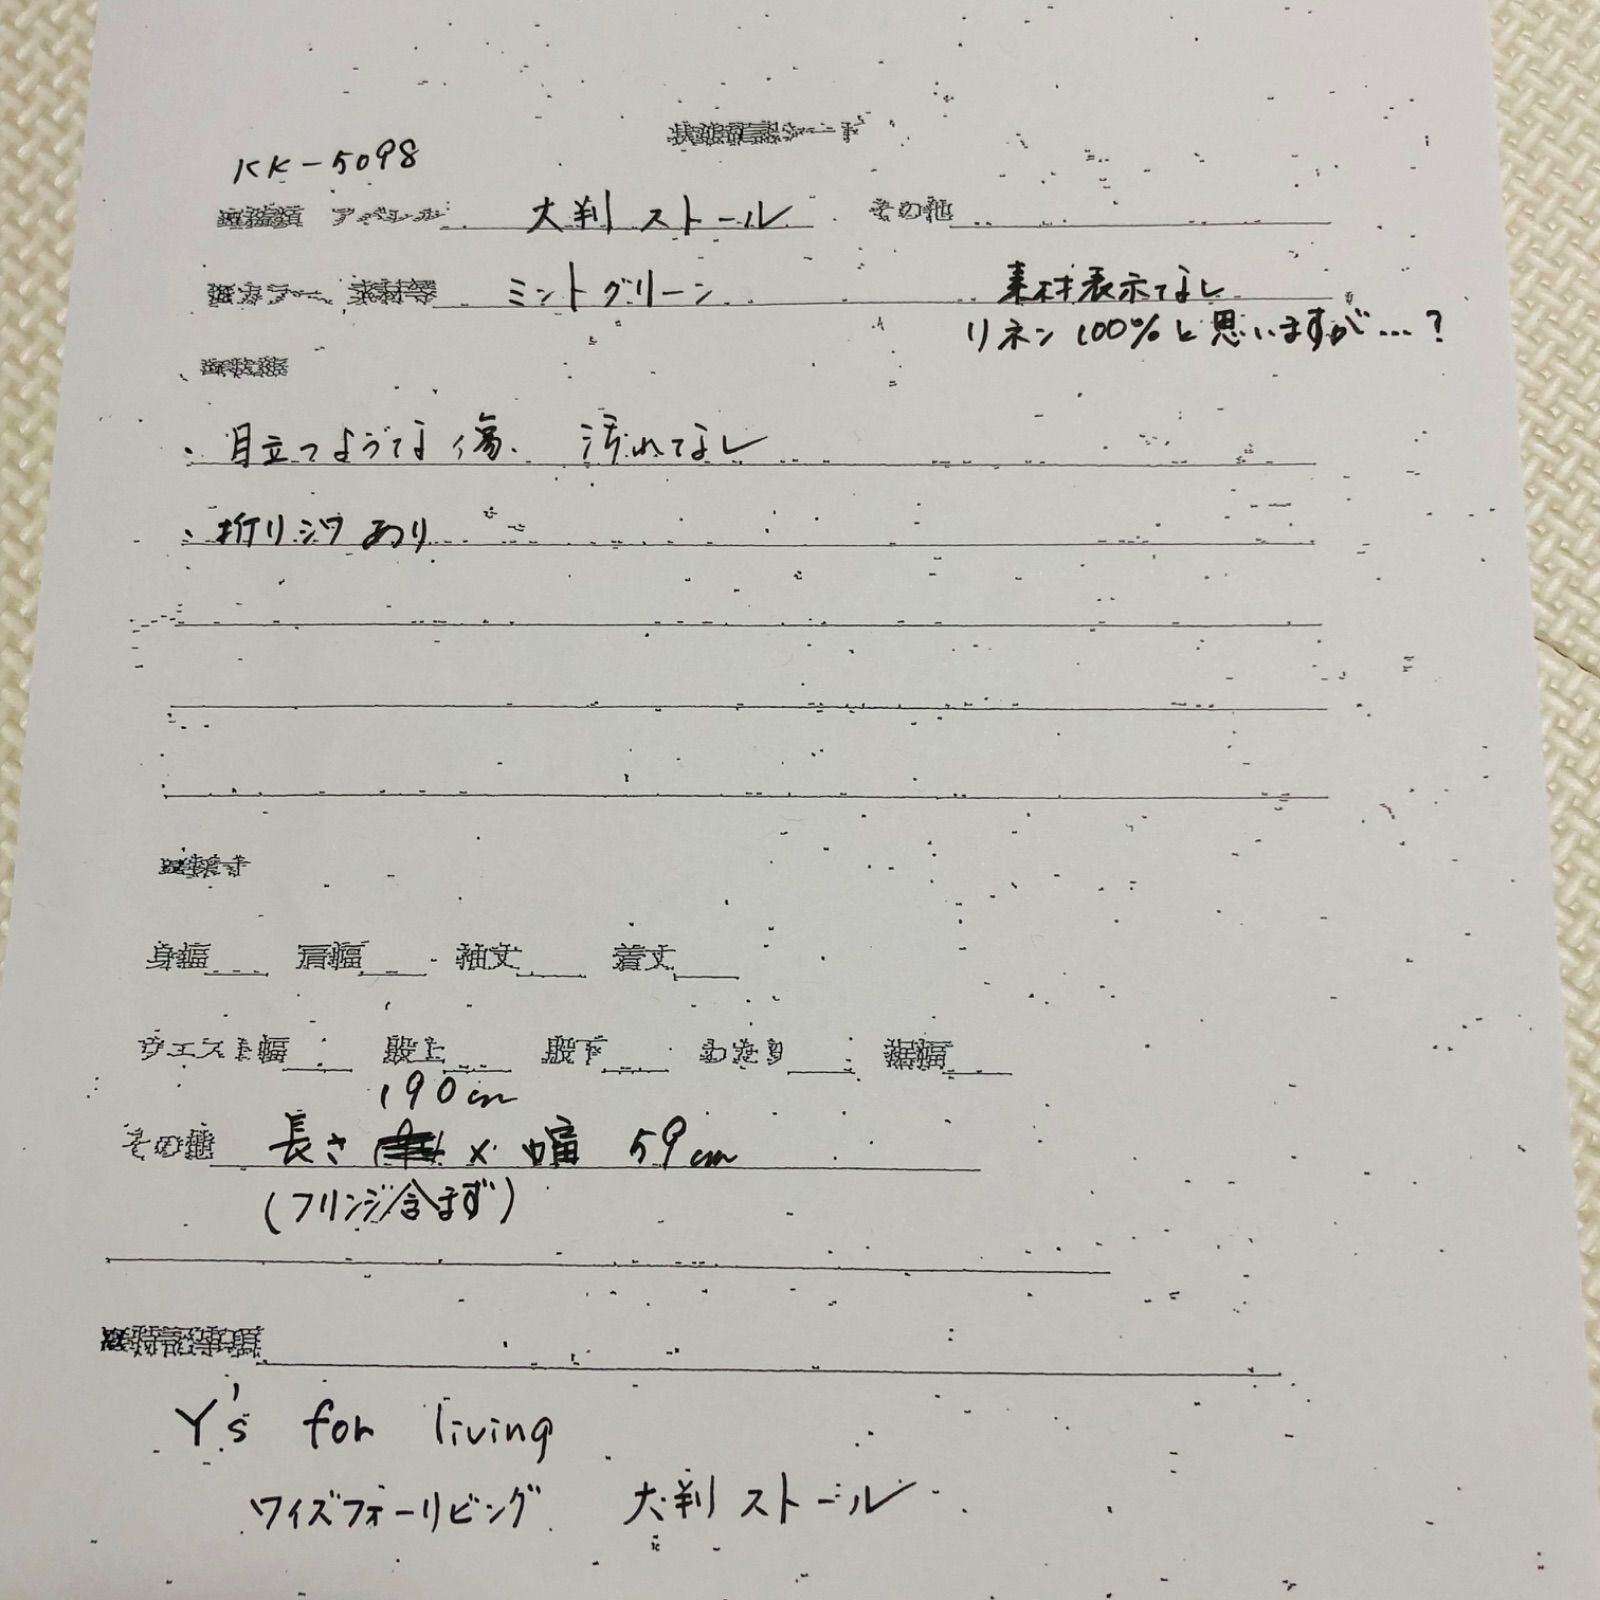 状態確認シート
KK-5098
アパレル 大判ストール その他
カラー、素材等 ミントグリーン 素材表示なし
リネン100%と思いますが…?
・目立つような傷、汚れなし
・折りジワあり
採寸
身幅 肩幅 袖丈 着丈
ウエスト幅 股上 股下 わたり 裾幅
190cm
その他 長さ × 幅 59cm
(フリンジ含まず)
特記事項
Y's for living
ワイズフォーリビング 大判ストール